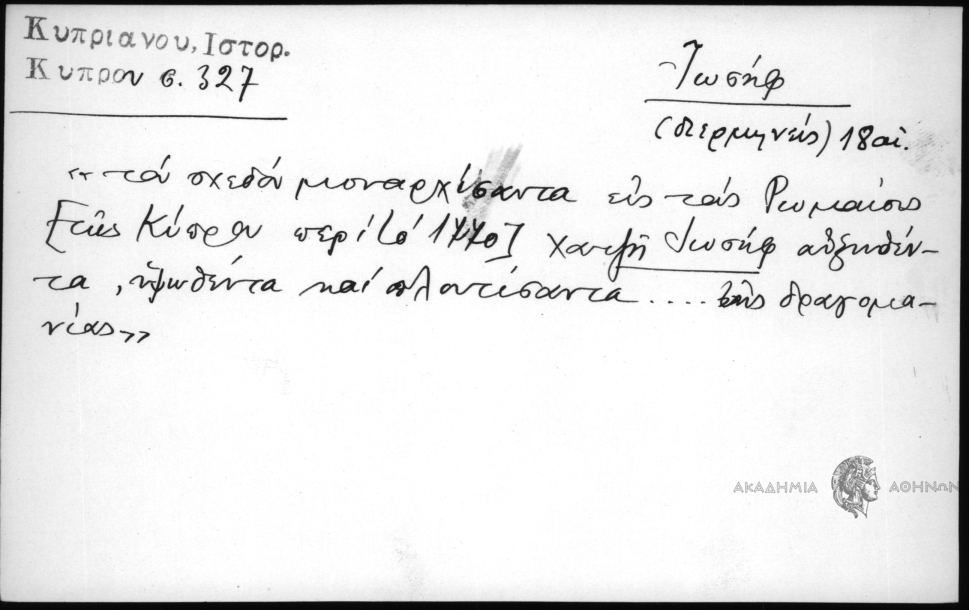 Κυπριανου, Ιστορ.
Κυπρου σ. 327
Ἰωσήφ
(διερμηνεύς) 18 αἰ.
«τόν σχεδόν μοναρχήσαντα εἰς τούς Ρωμαίους
[τῆς Κύπρου περί τό 1770] Χατζῆ Ἰωσήφ αὐξηθέν-
τα, ὑψωθέντα καί πλουτίσαντα .... τῆς δραγομα-
νίας»
ΑΚΑΔΗΜΙΑ ΑΘΗΝΩΝ